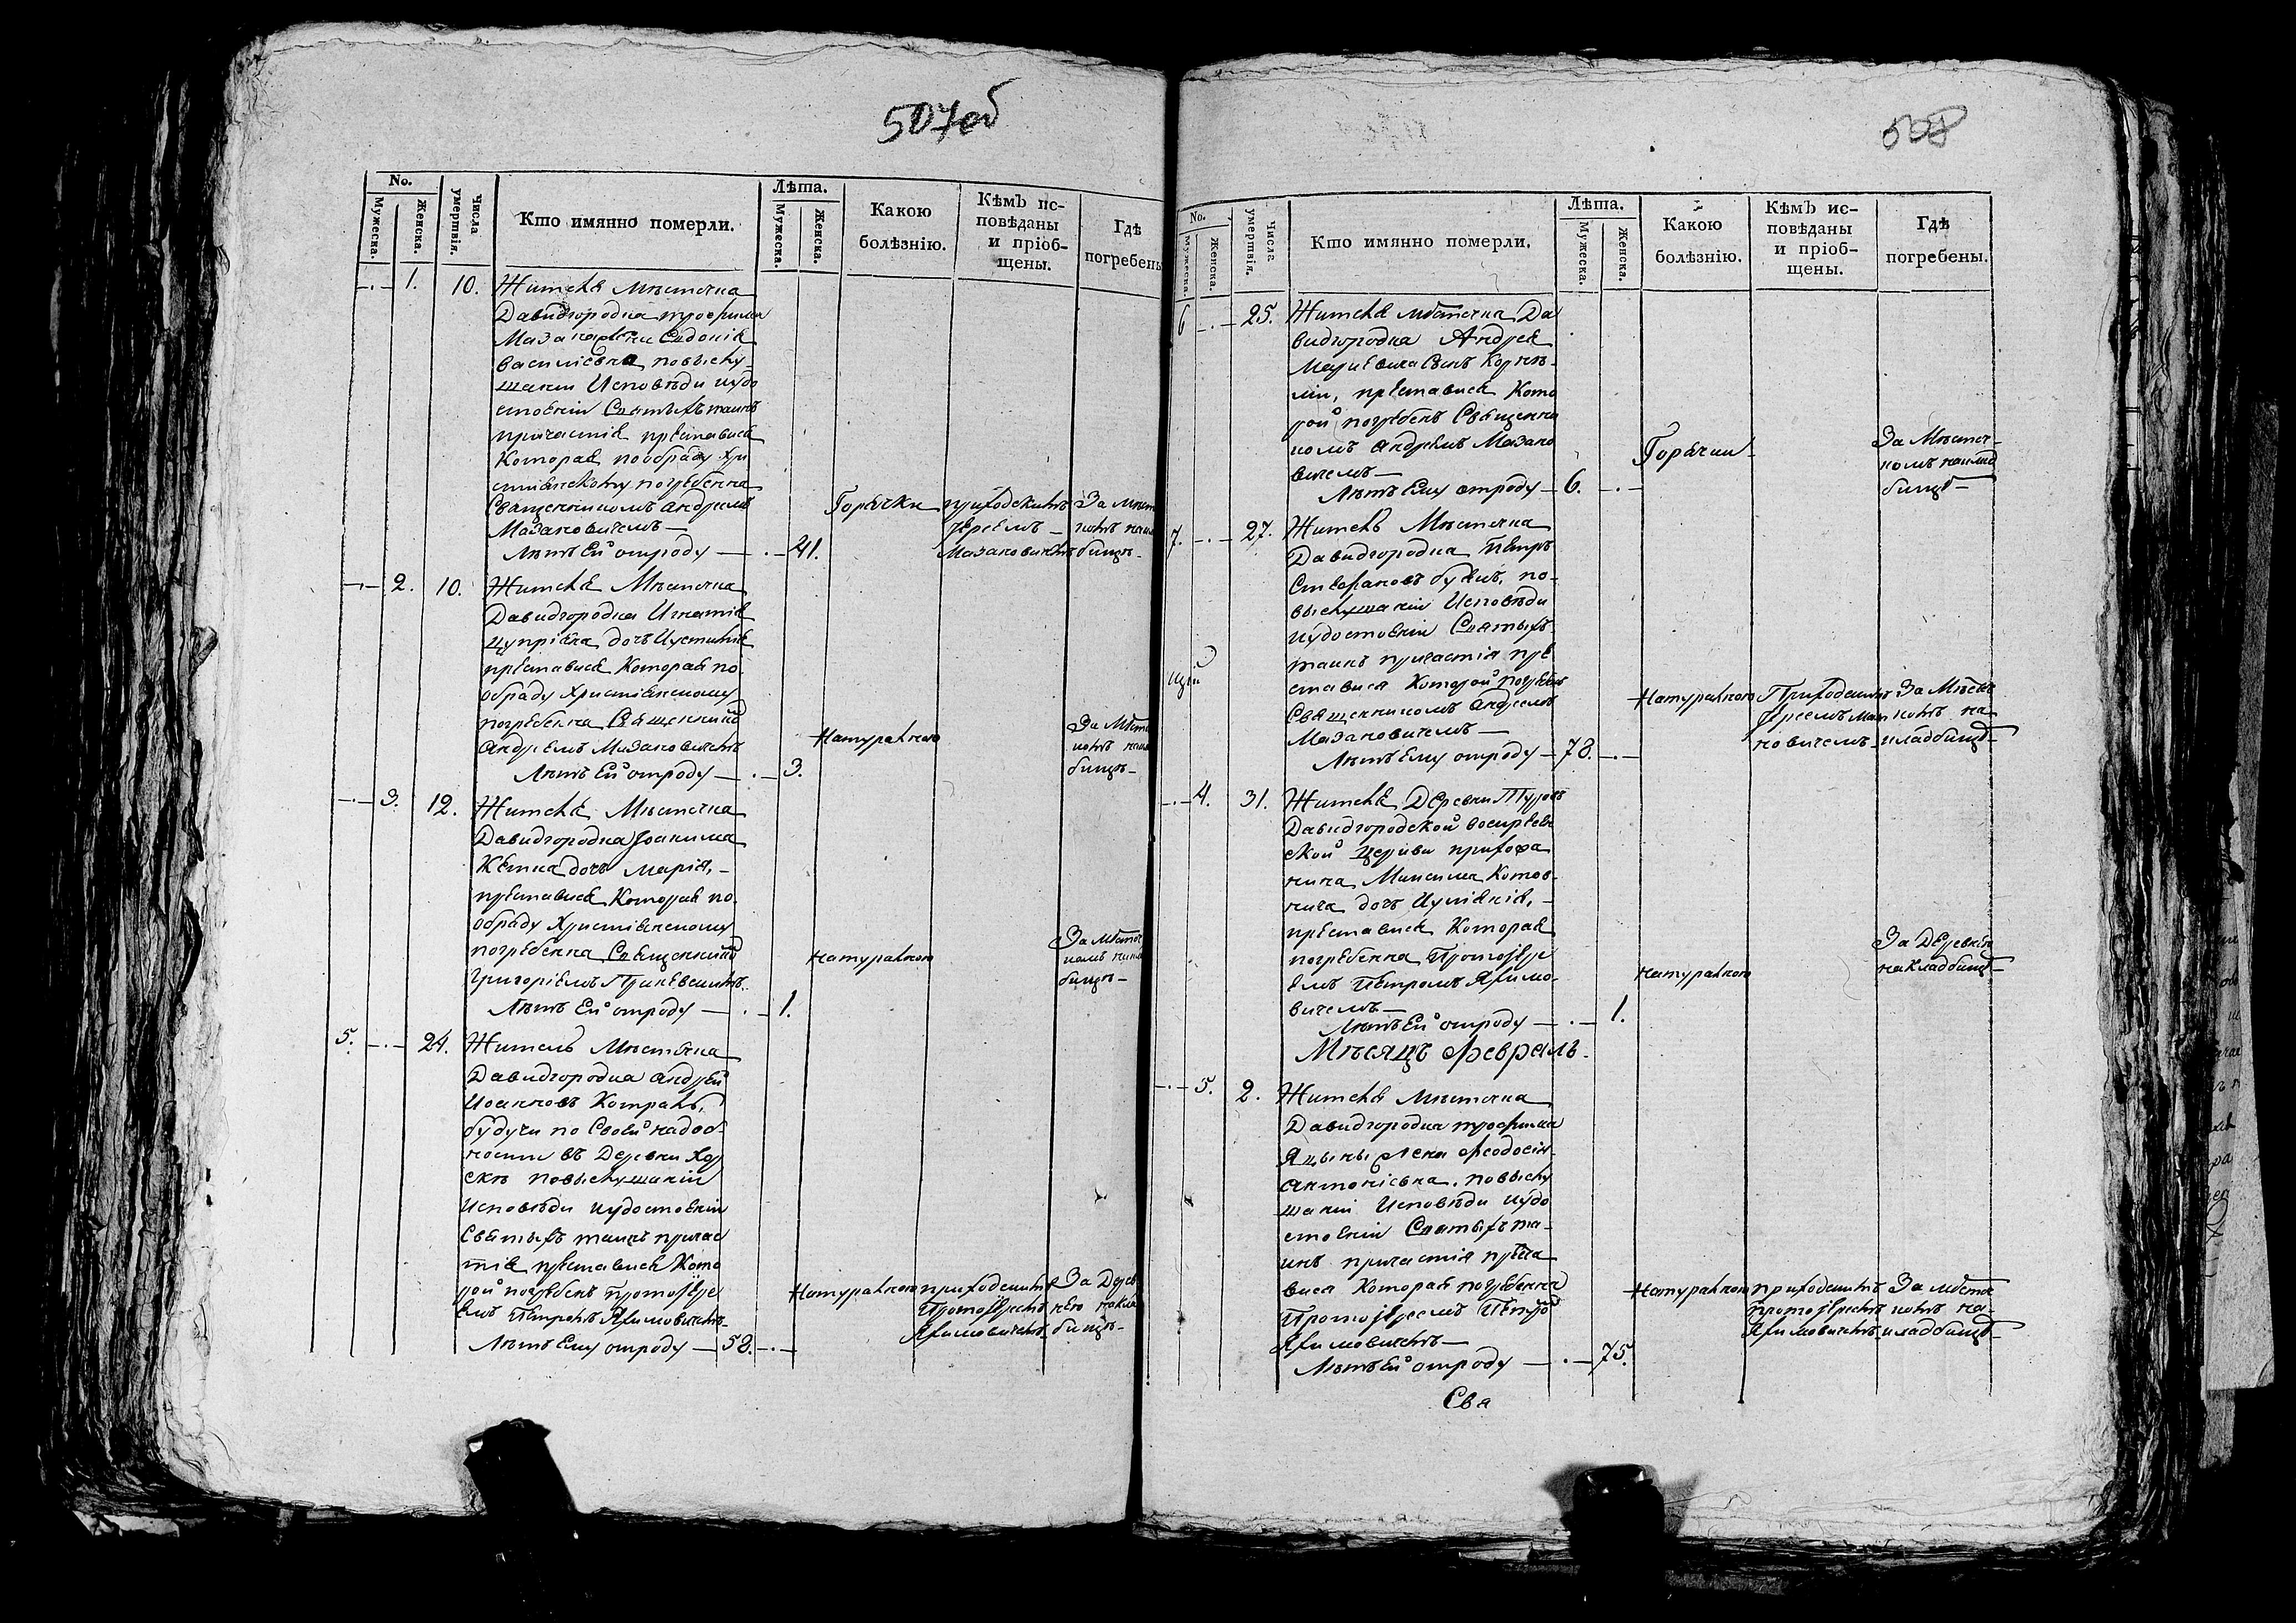 507об
No.
Мужеска.
Женска.
Числа умертвія.
Кто имянно померли.
Лѣта.
Мужеска.
Женска.
Какою болѣзнію.
Кѣмъ ис-
повѣданы
и пріоб-
щены.
Где
погребены
1. 10. Жителя Мѣстечка
Давидгородка трофима
Мазана жена Евдокія
василіевна, повыслу-
шаніи Исповѣди иудо
стоеніи Святыхъ таинъ
причастія преставися
Которая пообряду Хри
стіянскому погребенна
Священникомъ андреемъ
Мазановичемъ —
Лѣтъ Ей отроду — 41.
Горячки
приходскимъ
Іереемъ —
Мазановичемъ
За Мѣст
бищѣ —
2. 10. Жителя Мѣстечка
Давидгородка Игнатія
Цупріяна дочь Иустинія
преставися Которая по
обряду Христіянскому
погребенна Священнико
андреемъ Мазановичемъ
Лѣтъ Ей отроду — 3.
Натуральною
За Мѣст
бищѣ —
3. 12. Жителя Мѣстечка
Давидгородка Іоакима
дочь Марія, —
преставися Которая по
обряду Христіянскому
погребенна Священнико
григоріемъ
Лѣтъ Ей отроду — 1.
натуральною
За Мѣстеч
комъ
бищѣ —
5. 24. Житель Мѣстечка
Давидгородка андрей
Иоанновъ
будучи по Своей надоб-
ности въ Деревни Хор
скѣ повыслушаніи
Исповѣди иудостоеніи
Святыхъ таинъ причас
тія преставися Кото
рой погребенъ Протоіере
емъ Петромъ Яхимовичемъ
Лѣтъ Ему отроду — 58.
Натуральною
приходскимъ
Протоіереемъ
Яхимовичемъ
За Дерев
нею накла
бищѣ —
508
No.
Мужеска.
Женска.
Числа умертвія.
Кто имянно померли.
Лѣта.
Мужеска.
Женска.
Какою
болѣзнію.
Кѣмъ ис-
повѣданы
и пріоб-
щены.
Гдѣ
погребены.
6 25. Жителя мѣстечка Да
видгородка Андрея
Сынъ Корни-
лій, преставися Кото
рой погребенъ Священни
комъ андреемъ Мазано
вичемъ —
Лѣтъ Ему отроду — 6.
Горячки
За Мѣстеч-
комъ наклад
бищѣ —
7. 27. Житель Мѣстечка
Давидгородка Петръ
Стефановъ по-
выслушаніи Исповѣди
иудостоеніи Святыхъ
таинъ причастія пре
ставися Которой погребенъ
Священникомъ андреемъ
Мазановичемъ —
Лѣтъ Ему отроду — 78.
Натуральною
Приходскимъ
Іереемъ Маза
новичемъ
За Мѣстеч
комъ на
кладбищѣ —
4. 31. Жителя Деревни
Давидгородской воскресен
ской Церкви прихожа
нина Максима Котов-
дочь Иуліянія, —
преставися Которая
погребенна Протоіере
емъ Петромъ Яхимо-
вичемъ —
Лѣтъ Ей отроду — 1.
натуральною
За Деревнею
накладбищѣ —
Мѣсяцъ Февраль.
5. 2. Жителя Мѣстечка
Давидгородка трофима
Яцыны жена Феодосія
антоніевна, повыслу
шаніи Исповѣди иудо
стоеніи Святыхъ та-
инъ причастія преста
вися Которая погребенна
Протоіереемъ Петро
Яхимовичемъ —
Лѣтъ Ей отроду — 75.
Натуральною
приходскимъ
протоіереемъ
Яхимовичемъ
За мѣстеч
комъ на-
кладбищѣ —
Свя